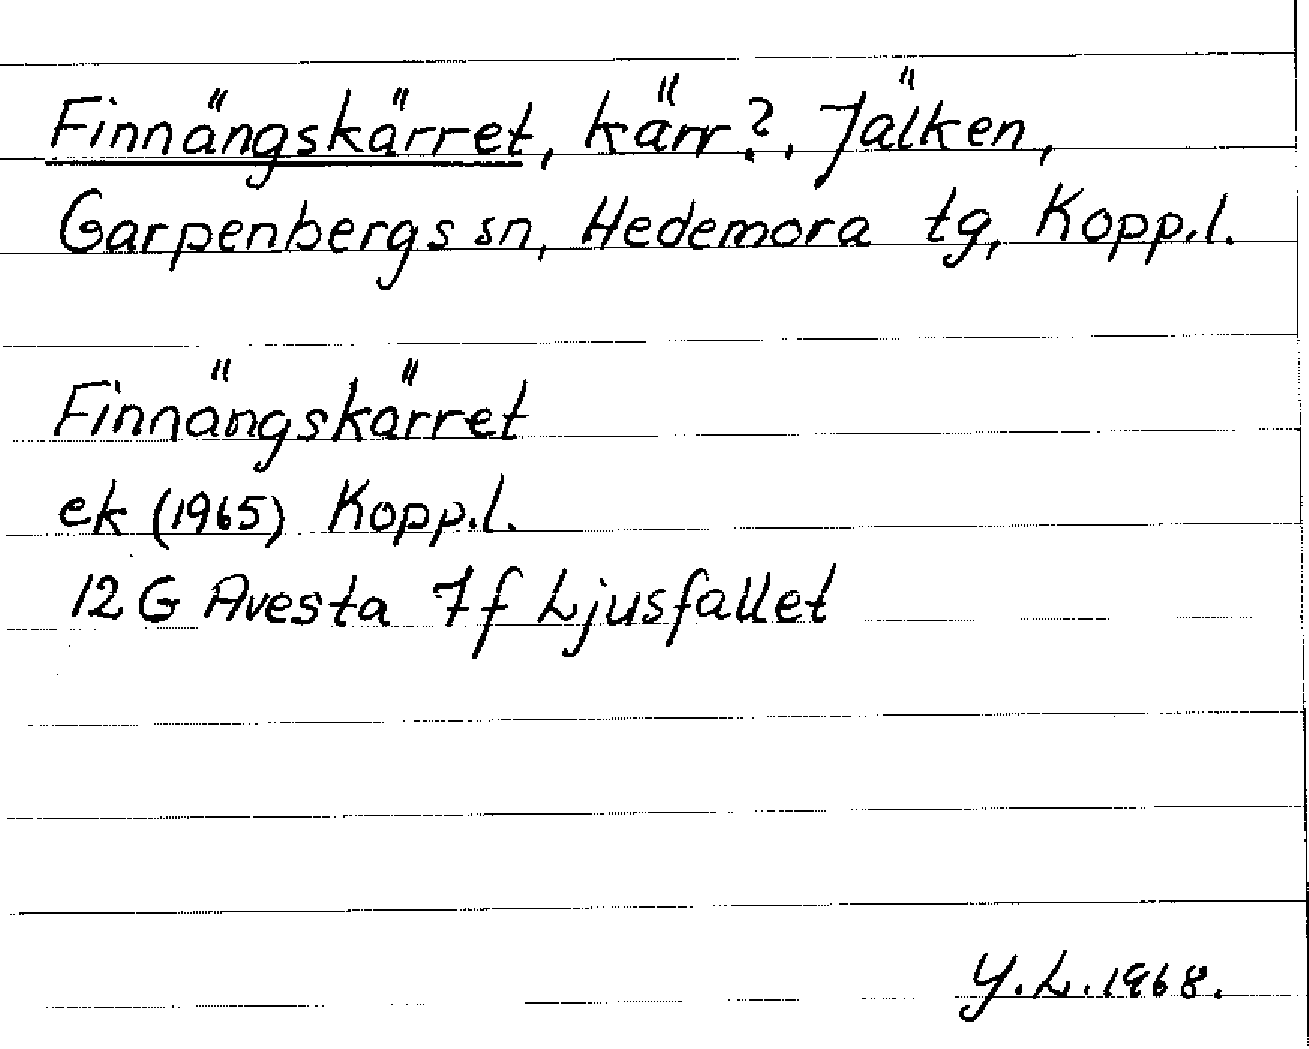 Finnängskärret, kärr?, Jälken,
Garpenbergs sn, Hedemora tg, Kopp.l.
Finnängskärret
ek (1965) Kopp.l.
12 G Avesta 7f Ljusfallet
Y.L. 1968.